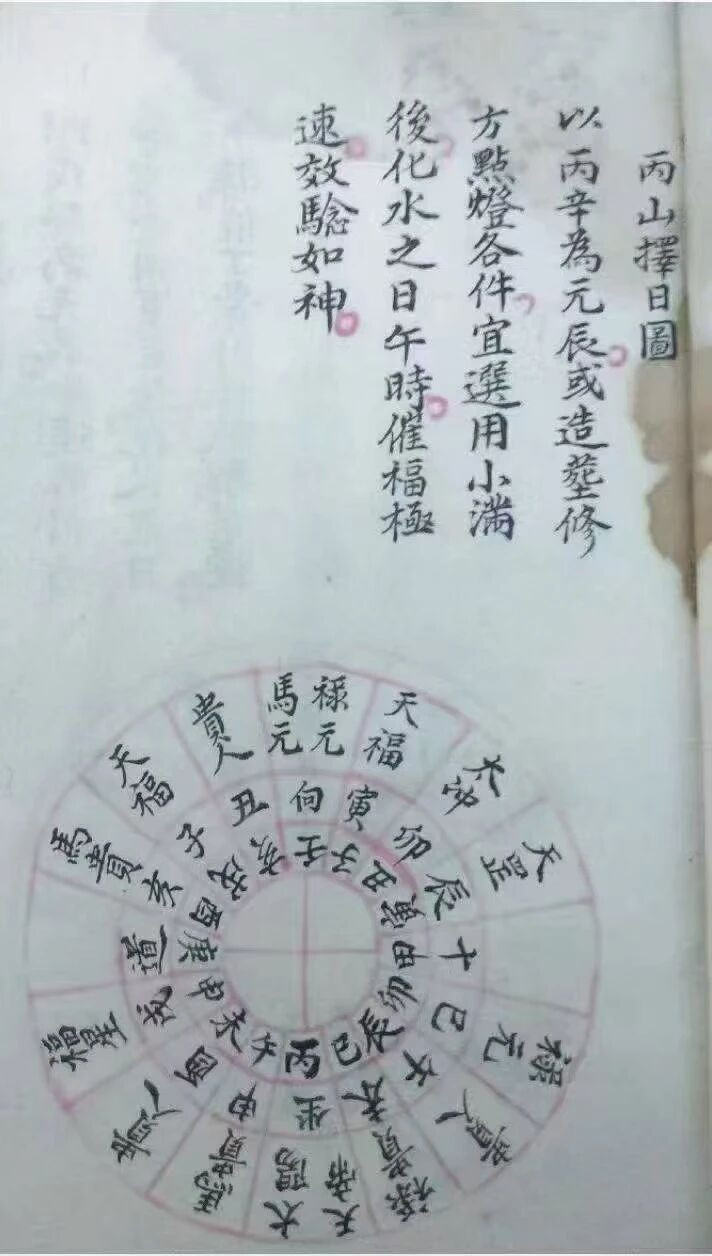 丙山擇日圖
以丙辛為元辰或造塟修
方點燈各件宜選用小滿
後化水之日午時催福極
速效騐如神
祿元
馬元
天福
太陰
天星
祿元
貴人
祿貴
天帝
太陽
馬貴
貴人
福星
馬貴
天福
貴人
向
寅
卯
辰
十
巳
午
未
坐
申
酉
戌
道
亥
子
丑
壬
子
丑
寅
甲
卯
辰
巳
丙
午
未
申
庚
酉
戌
亥